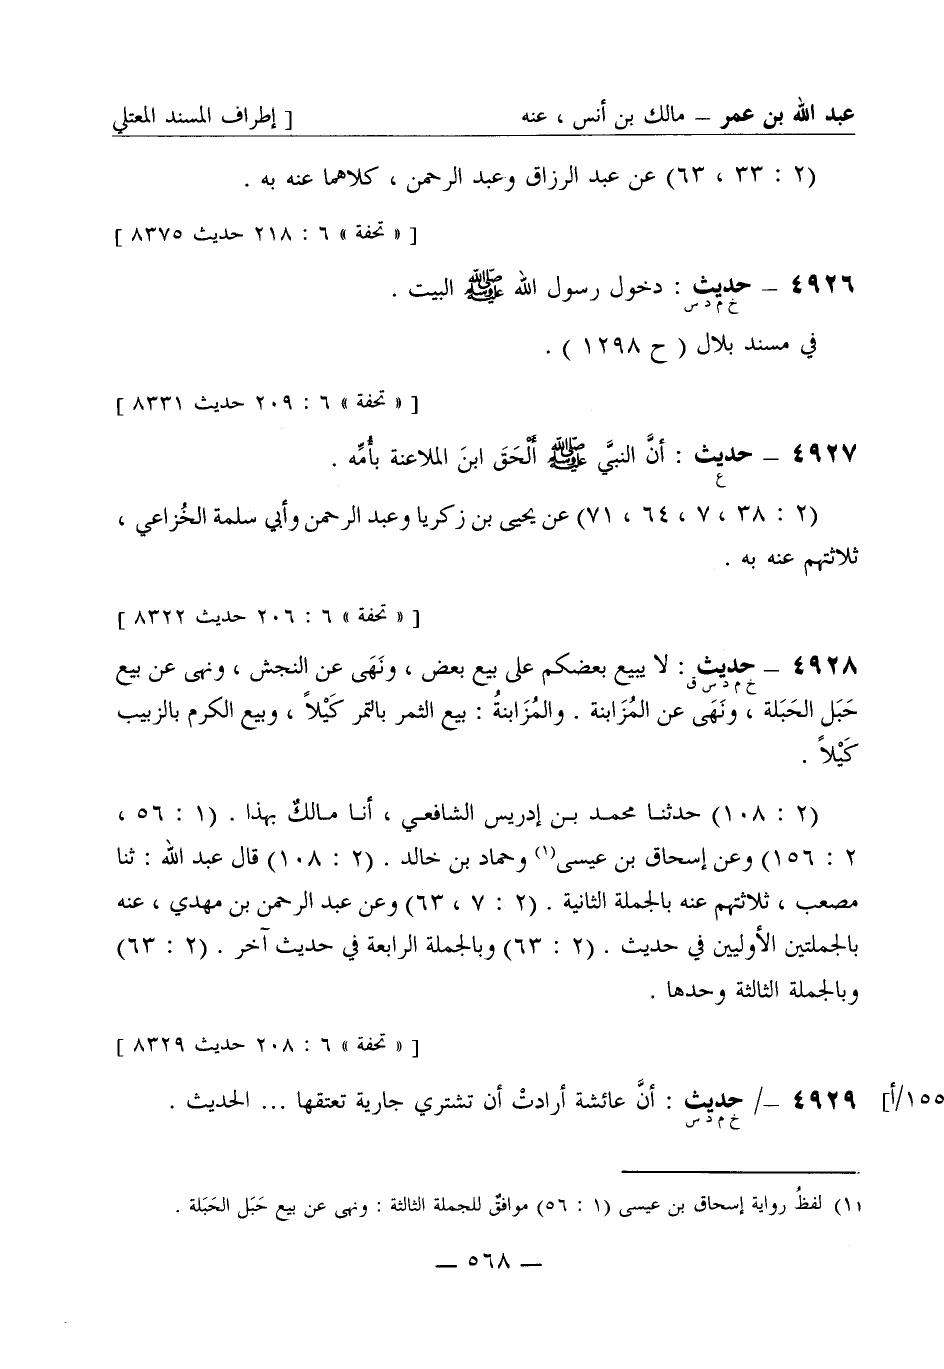 عبد الله بن عمر – مالك بن أنس ، عنه [ إطراف المسند المعتلي
(٢ : ٣٣ ، ٦٣) عن عبد الرزاق وعبد الرحمن ، كلاهما عنه به .
[ « تحفة » ٦ : ٢١٨ حديث ٨٣٧٥ ]
٤٩٢٦ – حديث : دخول رسول الله ﷺ البيت .
خ م د س
في مسند بلال ( ح ١٢٩٨ ) .
[ « تحفة » ٦ : ٢٠٩ حديث ٨٣٣١ ]
٤٩٢٧ – حديث : أنَّ النبيَّ ﷺ أَلْحَقَ ابنَ الملاعنة بأُمِّه .
ع
(٢ : ٣٨ ، ٧ ، ٦٤ ، ٧١) عن يحيى بن زكريا وعبد الرحمن وأبي سلمة الخُزاعي ،
ثلاثتهم عنه به .
[ « تحفة » ٦ : ٢٠٦ حديث ٨٣٢٢ ]
٤٩٢٨ – حديث : لا يبيع بعضكم على بيع بعض ، ونَهَى عن النجش ، ونهى عن بيع
خ م د س ق
حَبَل الحَبَلة ، ونَهَى عن المُزَابنة . والمُزَابنةُ : بيع الثمر بالتمر كَيْلاً ، وبيع الكرم بالزبيب
كَيْلاً .
(٢ : ١٠٨) حدثنا محمد بن إدريس الشافعي ، أنا مالكٌ بهذا . (١ : ٥٦ ،
٢ : ١٥٦) وعن إسحاق بن عيسى(١) وحماد بن خالد . (٢ : ١٠٨) قال عبد الله : ثنا
مصعب ، ثلاثتهم عنه بالجملة الثانية . (٢ : ٧ ، ٦٣) وعن عبد الرحمن بن مهدي ، عنه
بالجملتين الأوليين في حديث . (٢ : ٦٣) وبالجملة الرابعة في حديث آخر . (٢ : ٦٣)
وبالجملة الثالثة وحدها .
[ « تحفة » ٦ : ٢٠٨ حديث ٨٣٢٩ ]
١٥٥/أ] ٤٩٢٩ –/ حديث : أنَّ عائشة أرادتْ أن تشتري جارية تعتقها ... الحديث .
خ م د س
(١) لفظُ رواية إسحاق بن عيسى (١ : ٥٦) موافقٌ للجملة الثالثة : ونهى عن بيع حَبَل الحَبَلة .
— ٥٦٨ —